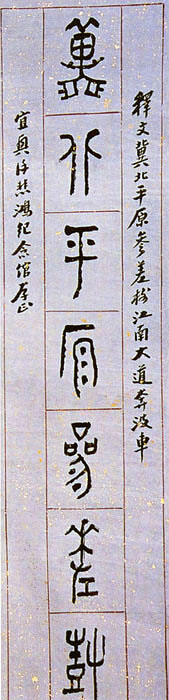 釋文冀北平原參差樹江南大道奔波車
冀北平原參差樹
宜興徐悲鴻紀念館存正